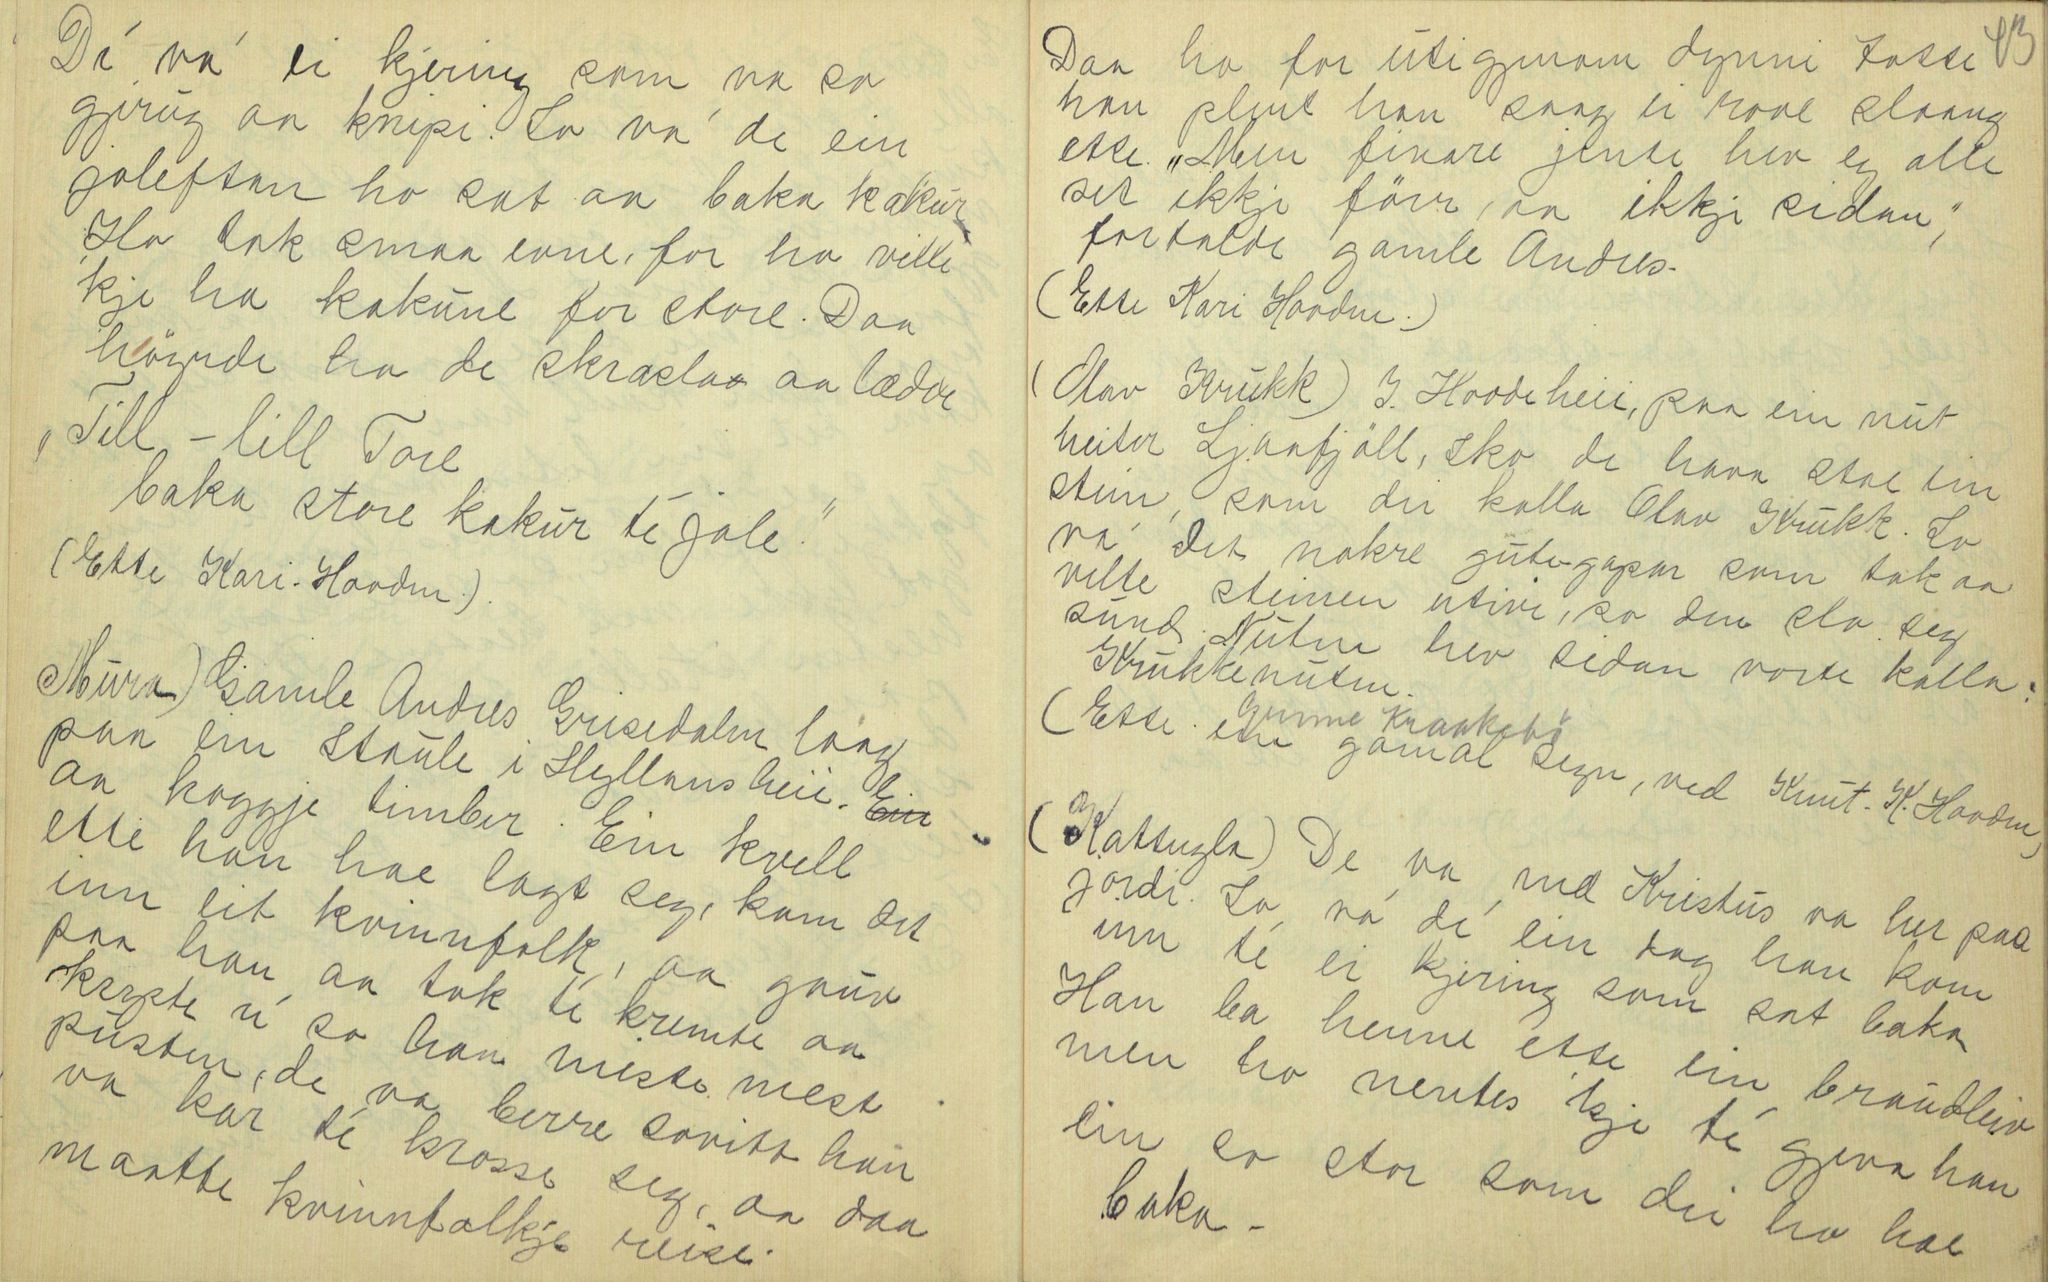 Di' va' ei kjering som va so
gjerug aa knipi. So va' de ein
joleftan ho sat aa baka kakur
Ho tok smaa evne, for ho ville
kje ha kakune for store. Daa
höyrde ho de skrasla aa lædde
"Till - lill Tore
baka store kakur té jole."
(Ette Kari Hovden.)
Mura) Gamle Andres Grisedalen laag
paa ein stäule i Hyllans heii. Ein
aa hoggje timber. Ein kvell
ette han hae lagt seg, kom det
inn eit kvinnfolk, aa gauv
paa han aa tok té kremte aa
kryste u' so han miste mest
pusten, de va berre sovitt han
va kar té krosse seg, aa daa
maatte kvinnfolkje reise.
43
Daa ho for utigjenom dynni totte
han plent han saag ei rove slaang
ette. "Men finare jente hev eg alle
set ikkje förr, aa ikkje sidan,"
fortalde gamle Andres.
(Ette Kari Hovden.)
(Olav Krukk) I Hovdeheii, paa ein nut
heiter Ljosfjöll, sko de hava stae ein
stein, som dei kalla Olav Krukk. So
va' det nokre gutegapar som tok aa
velte steinen utive, so den slo seg
sund. Nuten hev sidan vorte kalla:
Krukkenuten.
Gunne Kraakebö
(Ette ein gamal segn, ved Knut. K. Hovden,
(Kattugla) De va med Kristus va her paa
jordi. So va' dé ein dag han kom
inn té ei kjering som sat baka
Han ba henne ette ein braudleiv
men ho nentes kje té gjeva han
ein so stor som dei ho hae
baka -